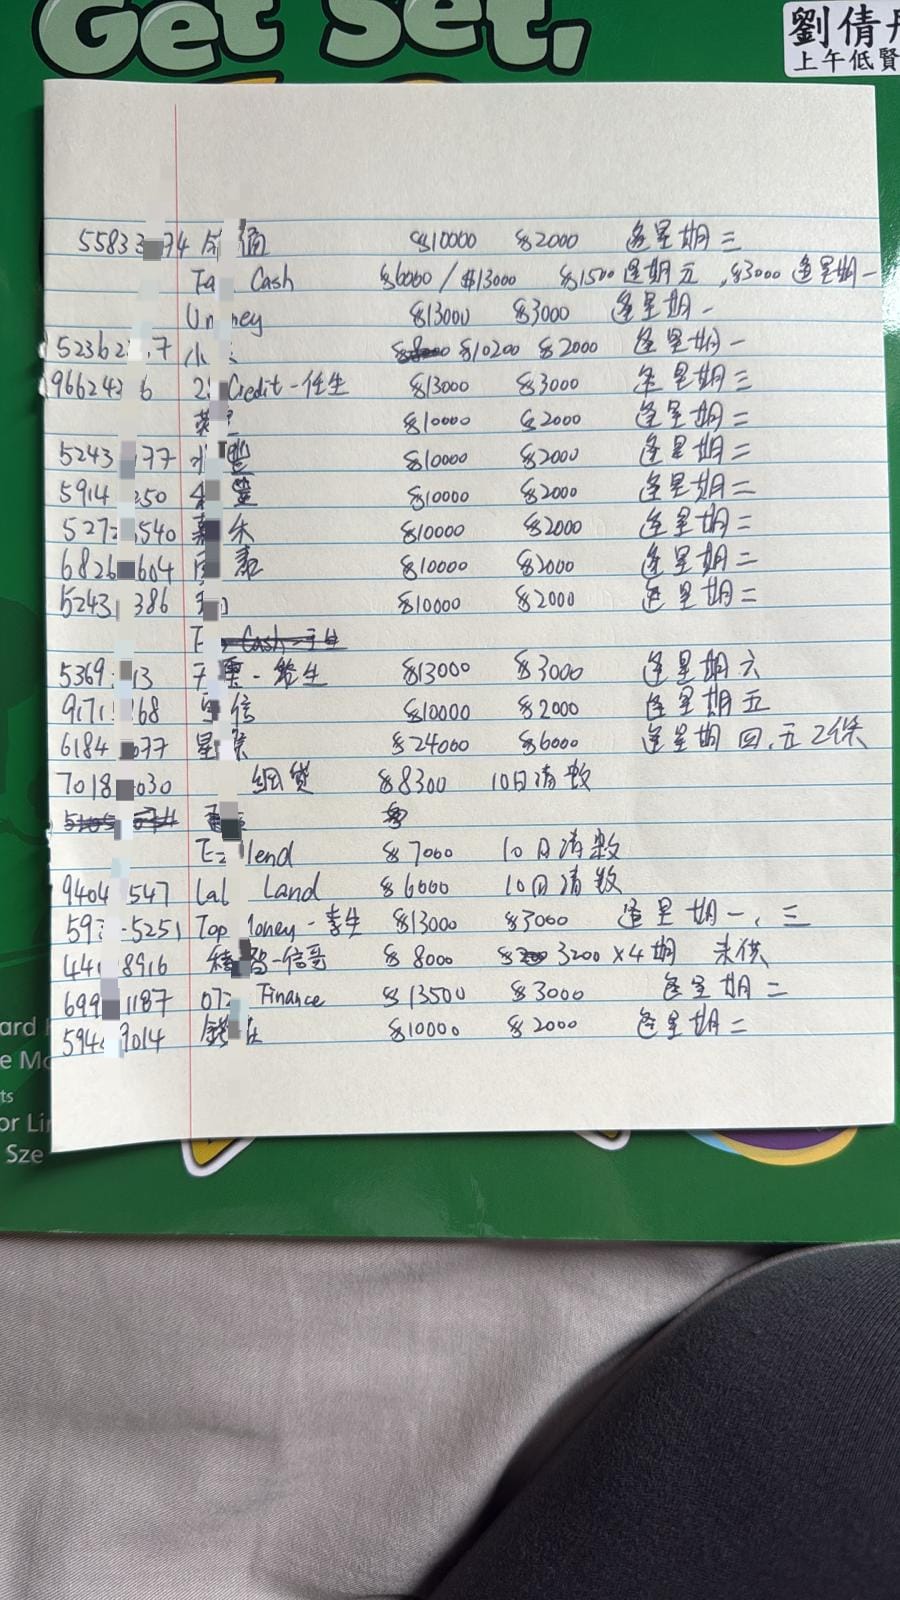 Get Set,
劉倩
上午低賢
55833 74 $10000 $2000 逢星期三
Fa Cash $6000 / $13000 $1500 逢期元, $3000 逢星期一
Un ney $13000 $3000 逢星期一
52362 7 小 $10200 $2000 逢星期一
966243 6 2 Credit-任生 $13000 $3000 逢星期三
$10000 $2000 逢星期二
5243 77 豐 $10000 $2000 逢星期二
5914 250 豐 $10000 $2000 逢星期二
527 540 嘉 禾 $10000 $2000 逢星期二
6826 604 $10000 $2000 逢星期二
5243 386 $10000 $2000 逢星期二
Cash
5369 13 $13000 $3000 逢星期六
9171 68 信 $10000 $2000 逢星期五
6184 077 星 $24000 $6000 逢星期四、五2條
7018 030 網貸 $8300 10日清數
Ez lend $7000 10日清數
9404 547 Lal Land $6000 10日清數
59 5251 Top Money-李生 $13000 $3000 逢星期一、三
44 8916 -信哥 $8000 3200×4期 未供
699 1187 07 Finance $13500 $3000 逢星期二
594 9014 $10000 $2000 逢星期二
ard
e Mo
ts
or Li
Sze